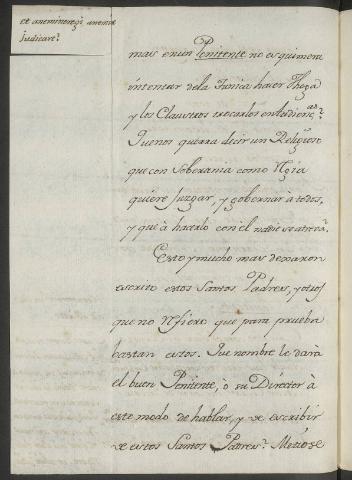 et anemine regi aneminè
judicare?
mas en un Penitente no es quimera
intentar dela Tunica hacer Thoga
y los Claustros trocarlos en Audienc.as?
Que nos querra decir un Religioso
que con Soberania como Regia
quiere Juzgar, y gobernar à todos,
y que à hacerlo con el nadie se atreva?
Esto y mucho mas dexaron
escrito estos Santos Padres, y otros
que no refiero que para prueba
bastan estos. Que nombre le darà
el buen Penitente, ò su Director à
este modo de hablar, y de escribir
de estos Santos Padres?